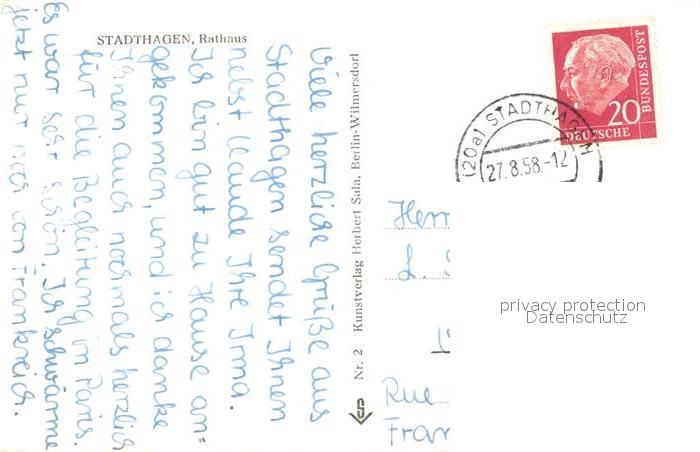 STADTHAGEN, Rathaus
Viele herzliche Grüße aus
Stadthagen sendet Ihnen
nebst Claude Ihre Irma.
Ich bin gut zu Hause an=
gekommen, und ich danke
Ihnen auch nochmals herzlich
für die Begleitung in Paris.
Es war sehr schön. Ich schwärme
jetzt nur noch von Frankreich.
Nr. 2 Kunstverlag Herbert Sala, Berlin-Wilmersdorf
20
DEUTSCHE
BUNDESPOST
(20a) STADTHAGEN
27.8.58.-12
Herr
L.
Rue
Fran
privacy protection
Datenschutz